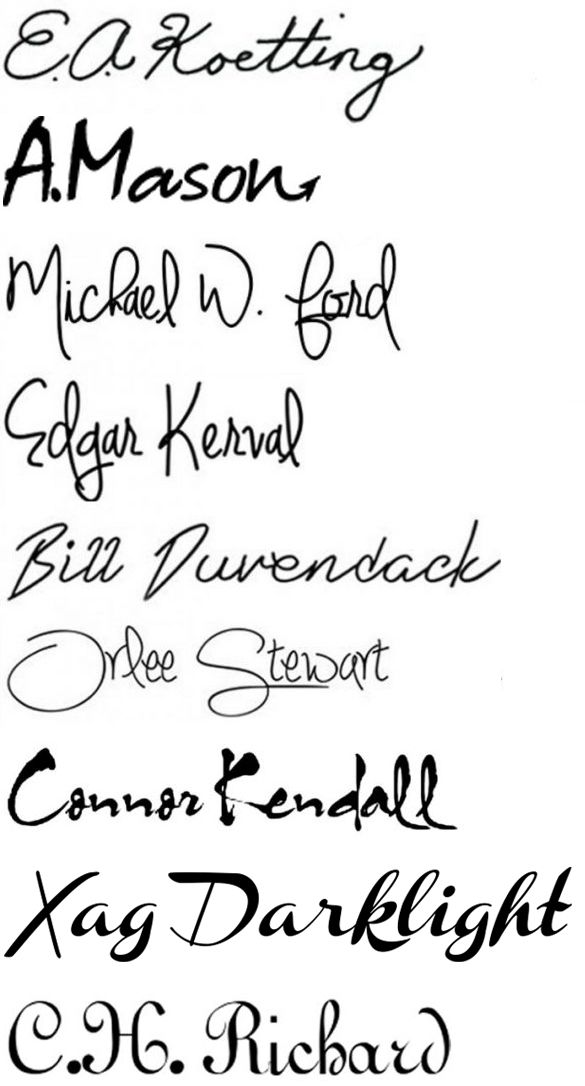 E.A. Koetting
A. Mason
Michael W. Ford
Edgar Kerval
Bill Duvendack
Orlee Stewart
Connor Kendall
Xag Darklight
C.H. Richard